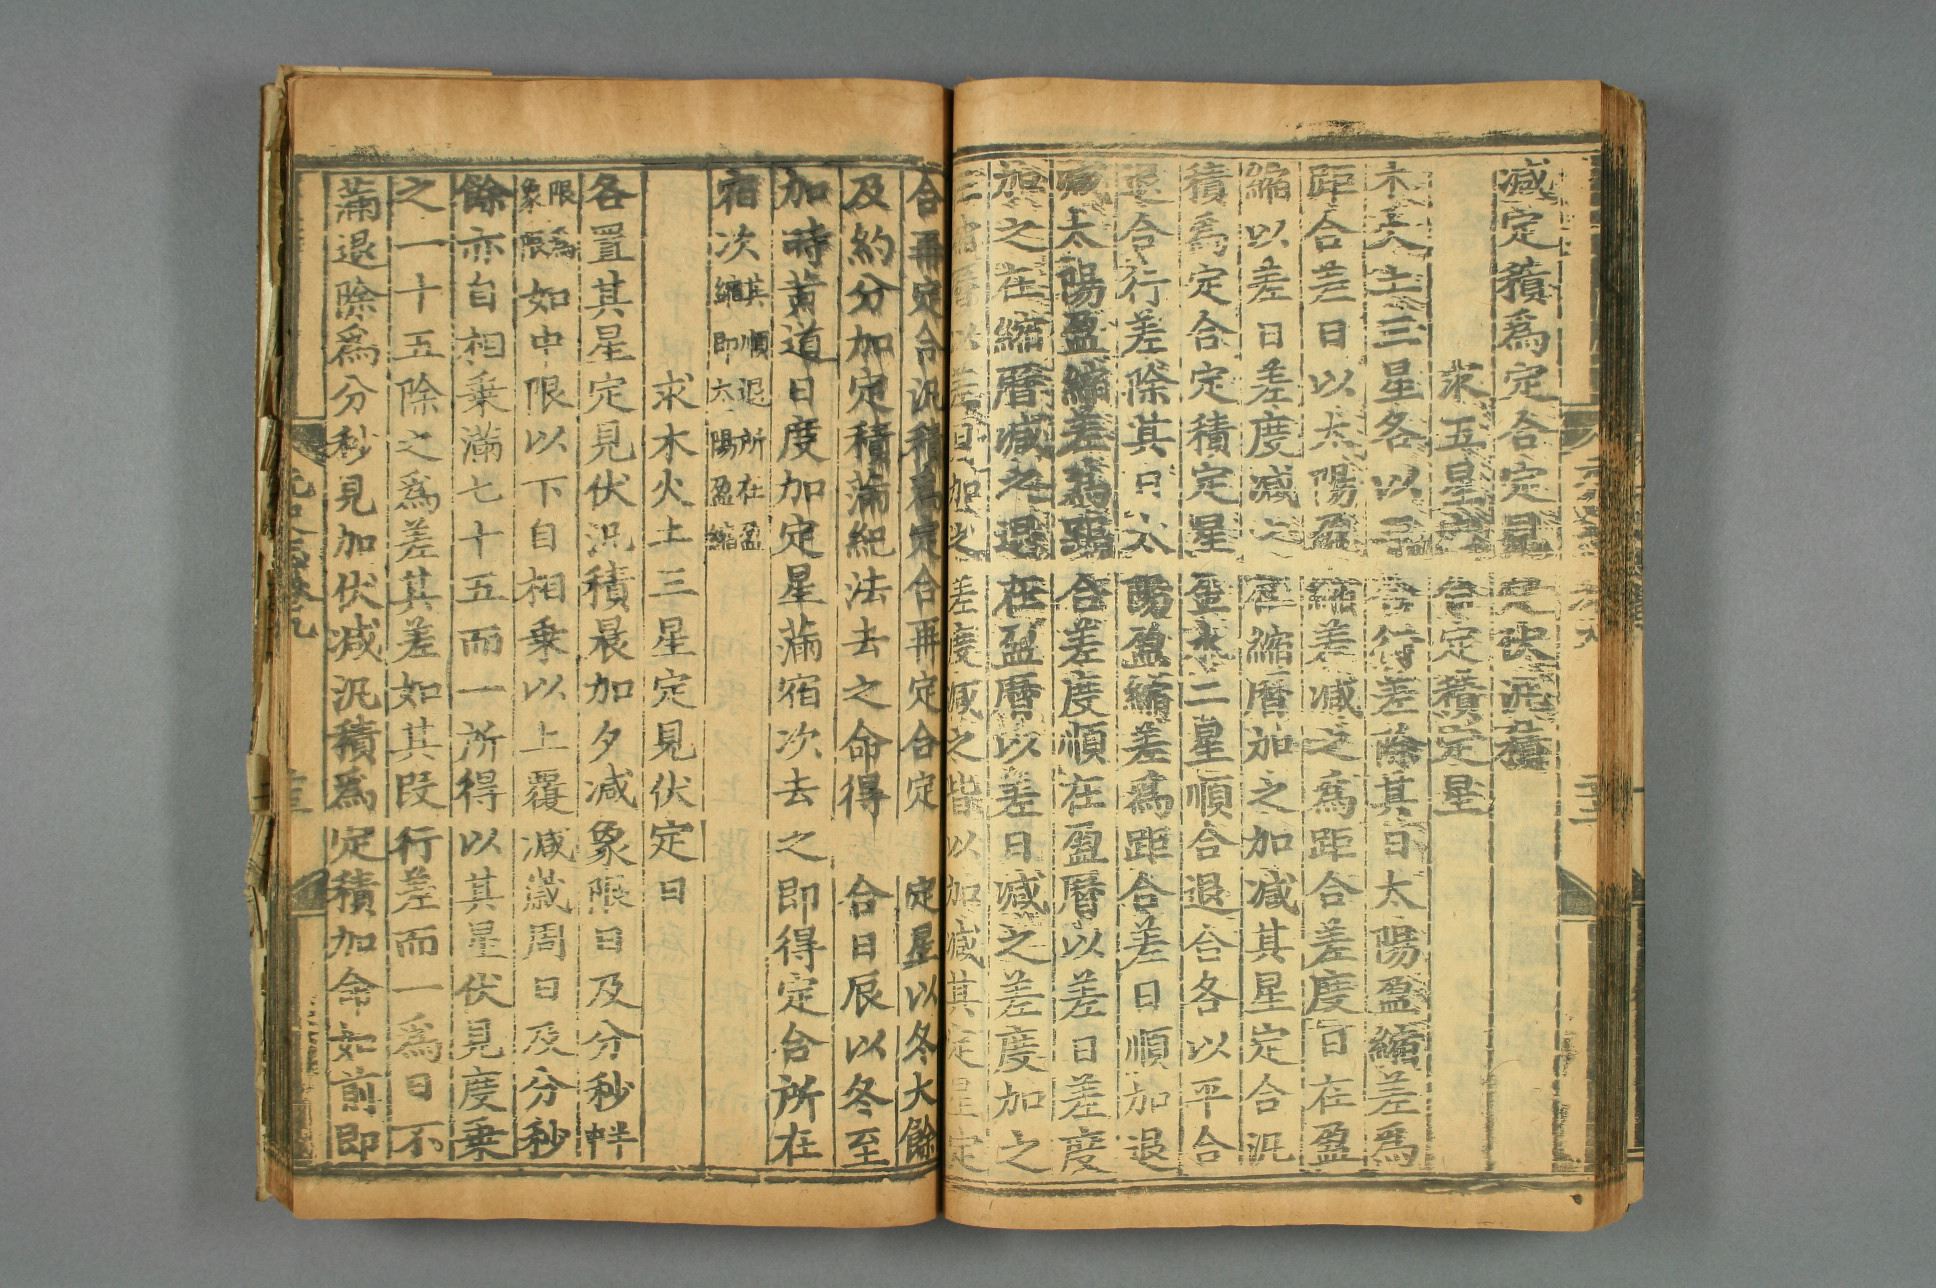 减定積爲定合定見定伏汎積
求五星定合定積定星
木火土三星各以平合行差除其日太陽盈縮差爲
距合差日以太陽盈縮差减之爲距合差度日在盈
縮以差日差度减之在縮曆加之加减其星定合汎
積爲定合定積定星金水二星順合退合各以平合
退合行差除其日太陽盈縮差爲距合差日順加退
减太陽盈縮差爲距合差度順在盈曆以差日差度
加之在縮曆减之退在盈曆以差日减之差度加之
在縮曆以差日加之差度减之皆以加减其定星定
合再定合汎積爲定合再定合定定星以冬大餘
及約分加定積滿紀法去之命得合日辰以冬至
加時黄道日度加定星滿宿次去之即得定合所在
宿次其順退所在盈縮即太陽盈縮
求木火土三星定見伏定日
各置其星定見伏汎積晨加夕减象限日及分秒半中
限爲象限如中限以下自相乗以上覆减歲周日及分秒
餘亦自相乗滿七十五而一所得以其星伏見度乗
之一十五除之爲差其差如其段行差而一爲日不
滿退除爲分秒見加伏减汎積爲定積加命如前即
元史志卷九